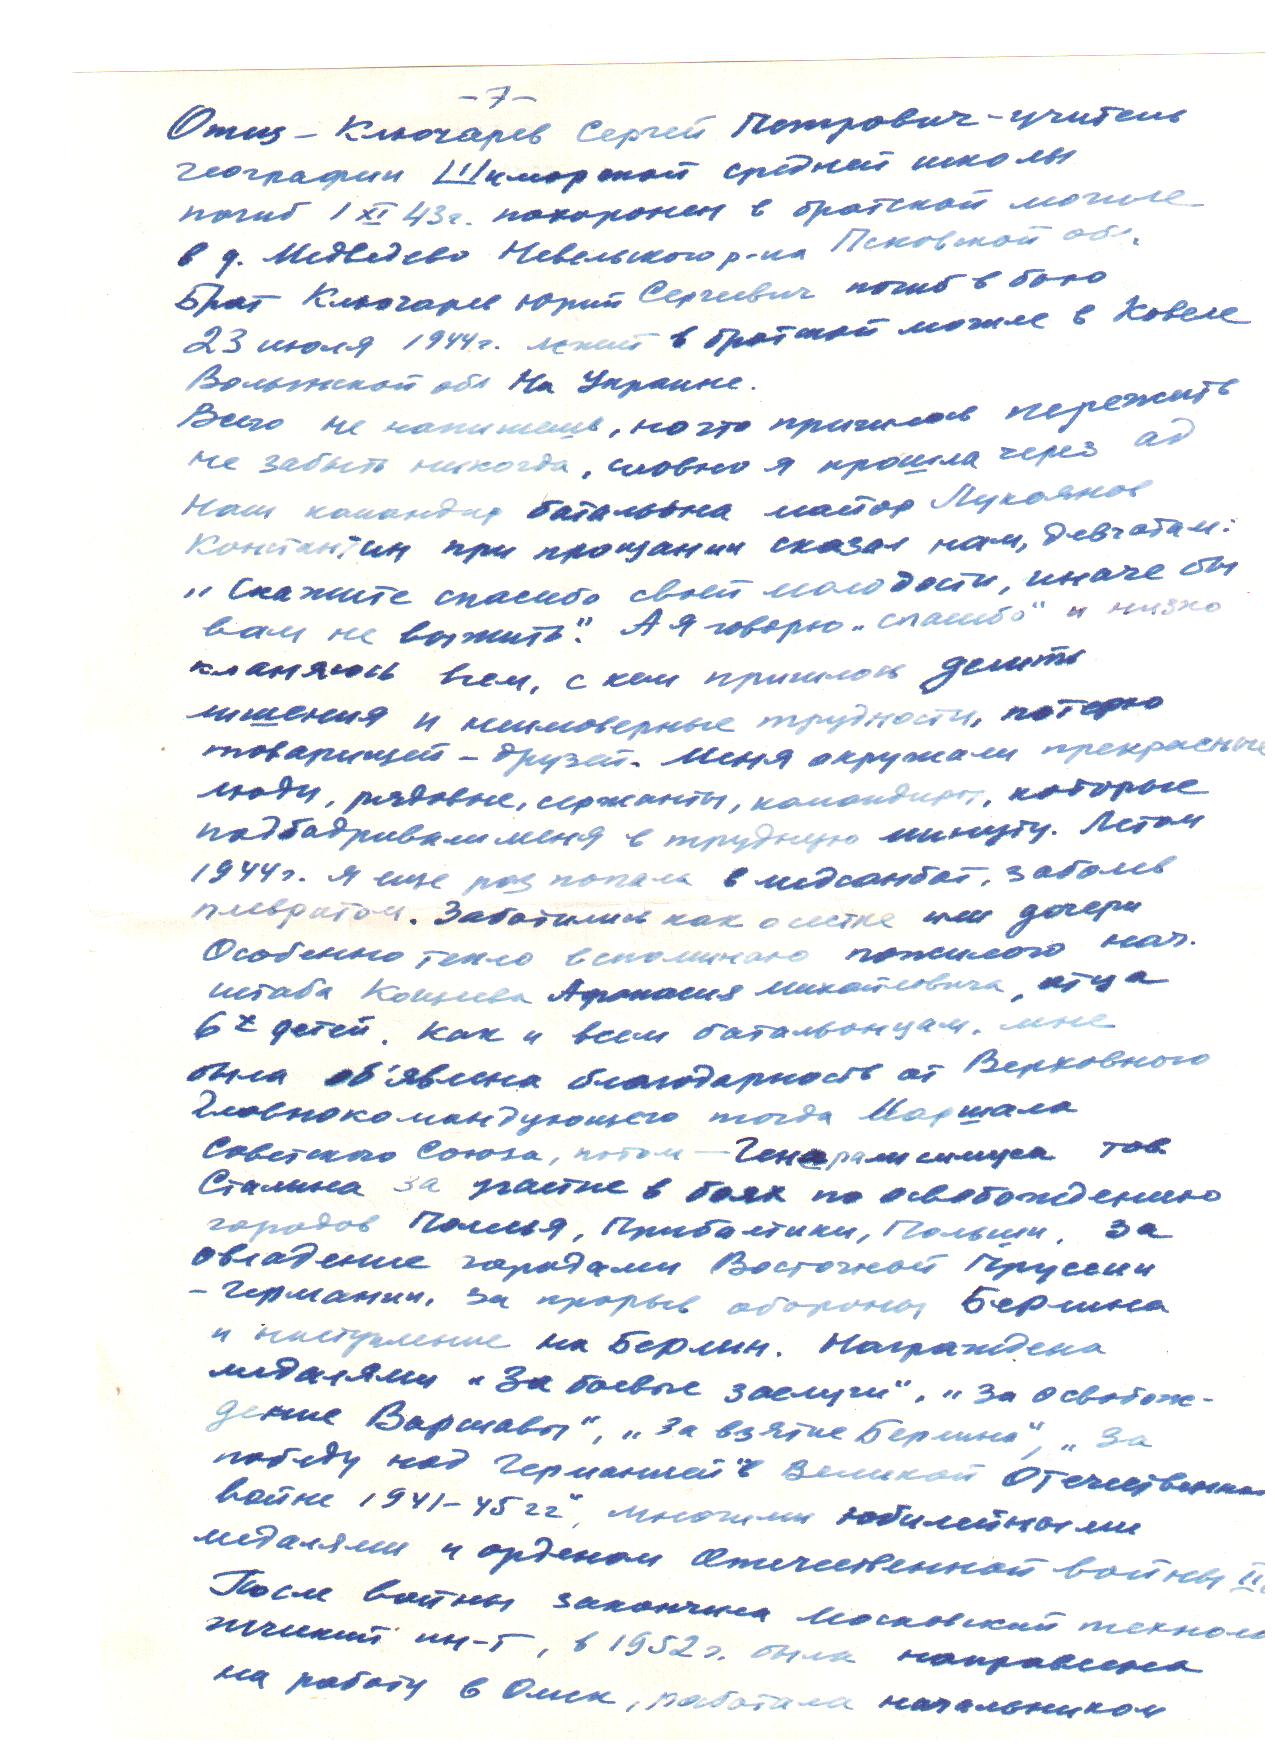 -7-
Отец - Ключарев Сергей Петрович - учитель
географии Шиморской средней школы
погиб 1 XI 43г. похоронен в братской могиле
в д. Медведево Невельского р-на Псковской обл.
Брат Ключарев Юрий Сергеевич погиб в бою
23 июля 1944г. лежит в братской могиле в Ковеле
Волынской обл на Украине.
Всего не напишешь, но что пришлось пережить
не забыть никогда, словно я прошла через ад
Наш командир батальона майор Лукоянов
Константин при прощании сказал нам, девчатам:
„Скажите спасибо своей молодости, иначе бы
вам не выжить". А я говорю „спасибо" и низко
кланяюсь всем, с кем пришлось делить
лишения и неимоверные трудности, потерю
товарищей - друзей. Меня окружали прекрасные
люди, рядовые, сержанты, командиры, которые
подбадривали меня в трудную минуту. Летом
1944г. я еще раз попала в медсанбат, заболев
плевритом. Заботились как о сестре или дочери
Особенно тепло вспоминаю пожилого нач.
штаба Афанасия Михайловича, отца
6х детей. Как и всем батальонцам, мне
была об'явлена благодарность от Верховного
Главнокомандующего тогда Маршала
Советского Союза, потом - Генералиссимуса тов
Сталина за участие в боях по освобождению
городов Полесья, Прибалтики, Польши, за
овладение городами Восточной Пруссии
- Германии, за прорыв обороны Берлина
и наступление на Берлин. Награждена
медалями „За боевые заслуги", „За освобож-
дение Варшавы", „За взятие Берлина", „За
победу над Германией в Великой Отечественной
войне 1941-45гг", многими юбилейными
медалями и орденом Отечественной войны II
После войны закончила Московский техноло
гический ин-т, в 1952г. была направлена
на работу в Омск, работала начальником